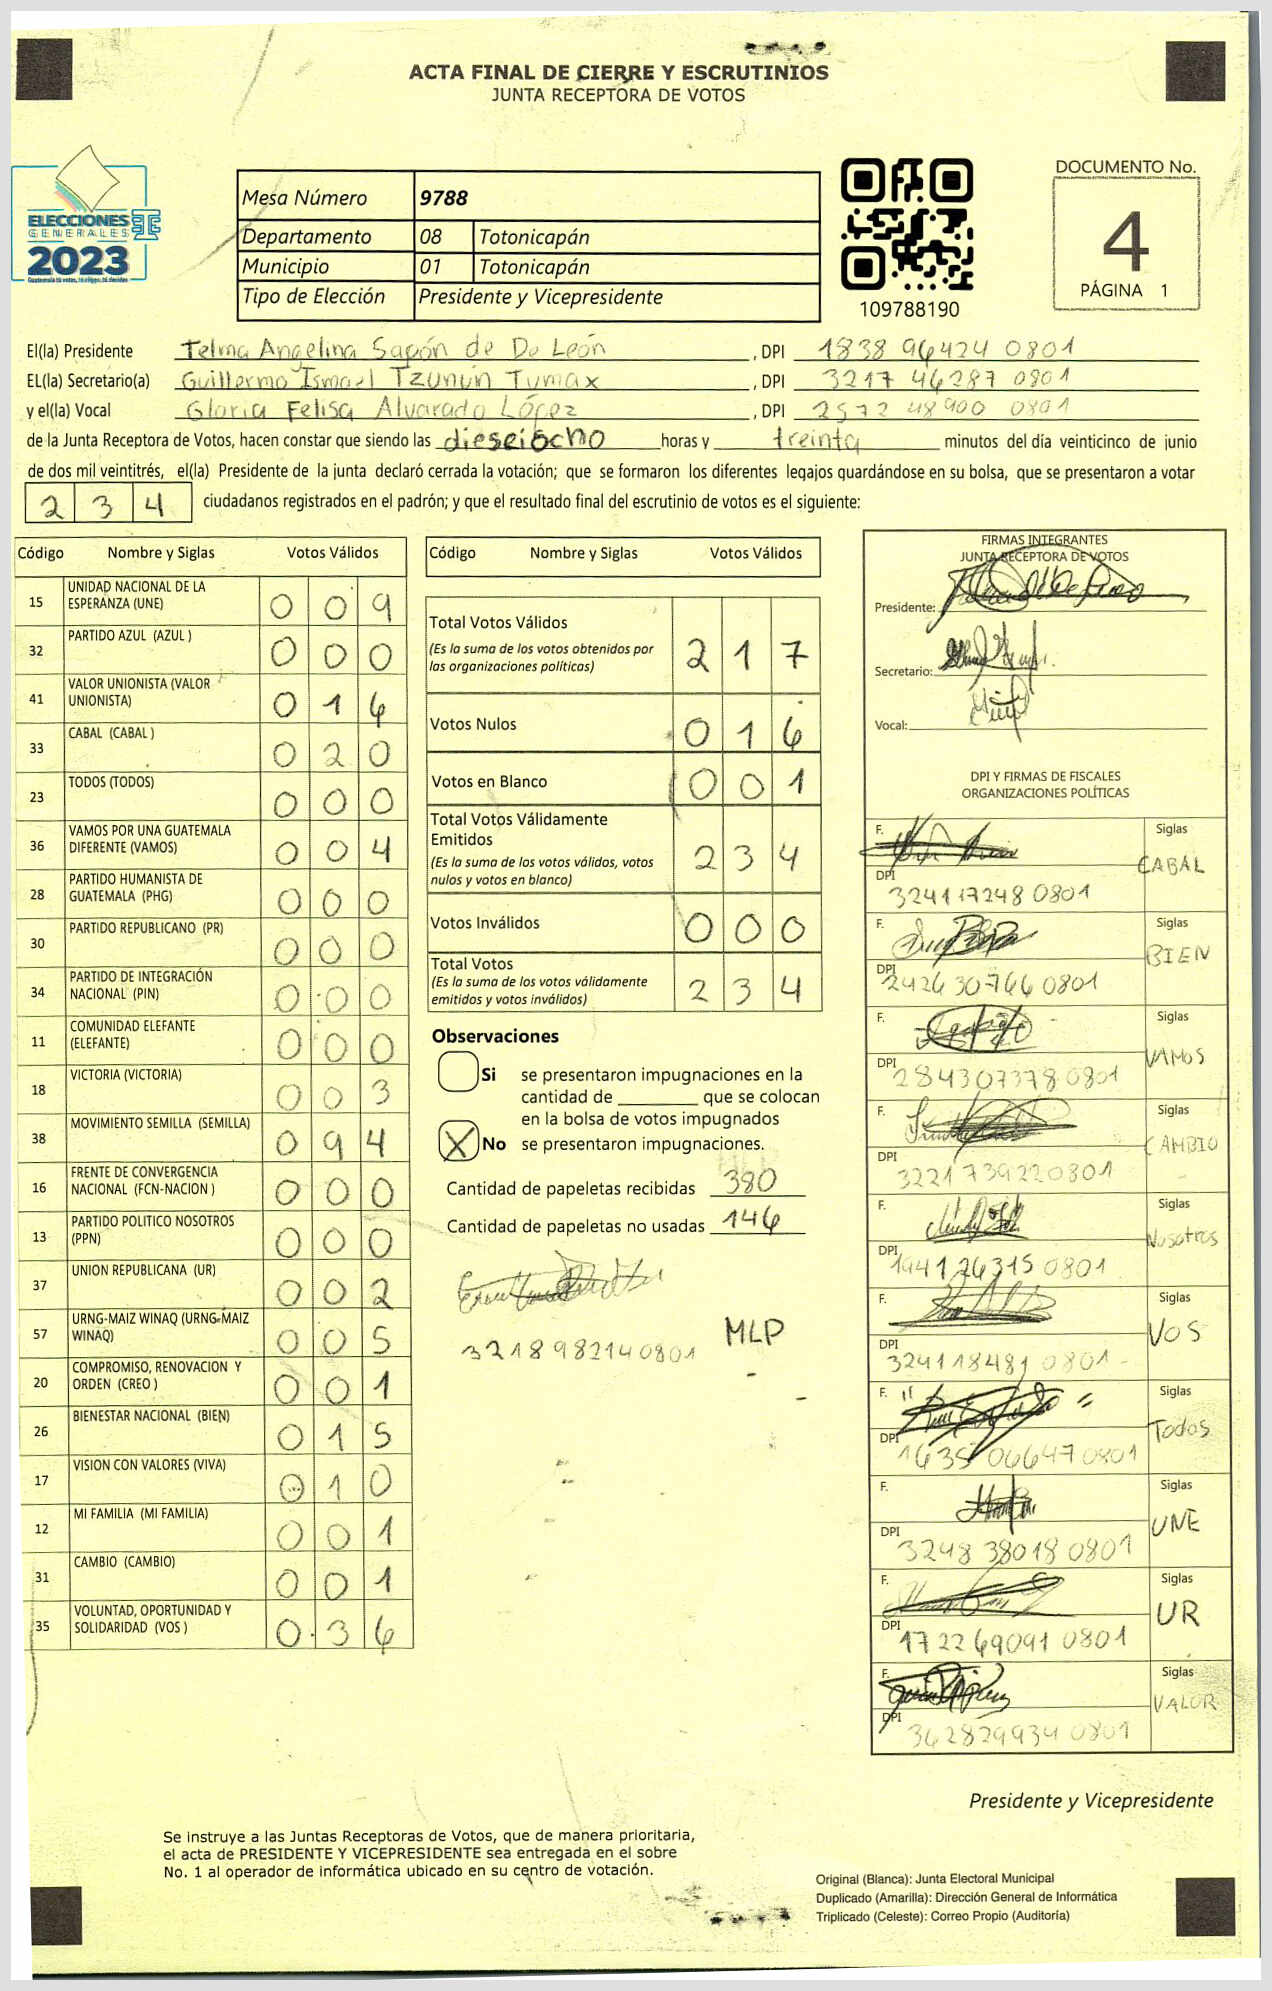 ACTA FINAL DE CIERRE Y ESCRUTINIOS
JUNTA RECEPTORA DE VOTOS
ELECCIONES
GENERALES
2023
Guatemala tú votas, tú eliges, tú decides
Mesa Número 9788
Departamento 08 Totonicapán
Municipio 01 Totonicapán
Tipo de Elección Presidente y Vicepresidente
109788190
DOCUMENTO No.
4
PÁGINA 1
El(la) Presidente Telma Angelina Sapón de De León , DPI 1838 96424 0801
EL(la) Secretario(a) Guillermo Ismael Tzunún Tumax , DPI 3217 46287 0801
y el(la) Vocal Gloria Felisa Alvarado López , DPI 2572 48900 0801
de la Junta Receptora de Votos, hacen constar que siendo las dieseiocho horas y treinta minutos del día veinticinco de junio
de dos mil veintitrés, el(la) Presidente de la junta declaró cerrada la votación; que se formaron los diferentes legajos quardándose en su bolsa, que se presentaron a votar
2 3 4 ciudadanos registrados en el padrón; y que el resultado final del escrutinio de votos es el siguiente:
Código Nombre y Siglas Votos Válidos
15 UNIDAD NACIONAL DE LA ESPERANZA (UNE) 0 0 9
32 PARTIDO AZUL (AZUL ) 0 0 0
41 VALOR UNIONISTA (VALOR UNIONISTA) 0 1 6
33 CABAL (CABAL ) 0 2 0
23 TODOS (TODOS) 0 0 0
36 VAMOS POR UNA GUATEMALA DIFERENTE (VAMOS) 0 0 4
28 PARTIDO HUMANISTA DE GUATEMALA (PHG) 0 0 0
30 PARTIDO REPUBLICANO (PR) 0 0 0
34 PARTIDO DE INTEGRACIÓN NACIONAL (PIN) 0 0 0
11 COMUNIDAD ELEFANTE (ELEFANTE) 0 0 0
18 VICTORIA (VICTORIA) 0 0 3
38 MOVIMIENTO SEMILLA (SEMILLA) 0 9 4
16 FRENTE DE CONVERGENCIA NACIONAL (FCN-NACION ) 0 0 0
13 PARTIDO POLITICO NOSOTROS (PPN) 0 0 0
37 UNION REPUBLICANA (UR) 0 0 2
57 URNG-MAIZ WINAQ (URNG-MAIZ WINAQ) 0 0 5
20 COMPROMISO, RENOVACION Y ORDEN (CREO ) 0 0 1
26 BIENESTAR NACIONAL (BIEN) 0 1 5
17 VISION CON VALORES (VIVA) 0 1 0
12 MI FAMILIA (MI FAMILIA) 0 0 1
31 CAMBIO (CAMBIO) 0 0 1
35 VOLUNTAD, OPORTUNIDAD Y SOLIDARIDAD (VOS ) 0 3 6
Código Nombre y Siglas Votos Válidos
Total Votos Válidos 2 1 7
(Es la suma de los votos obtenidos por
las organizaciones políticas)
Votos Nulos 0 1 6
Votos en Blanco 0 0 1
Total Votos Válidamente
Emitidos 2 3 4
(Es la suma de los votos válidos, votos
nulos y votos en blanco)
Votos Inválidos 0 0 0
Total Votos 2 3 4
(Es la suma de los votos válidamente
emitidos y votos inválidos)
Observaciones
Si se presentaron impugnaciones en la
cantidad de ________ que se colocan
en la bolsa de votos impugnados
X No se presentaron impugnaciones.
Cantidad de papeletas recibidas 380
Cantidad de papeletas no usadas 146
3218982140801 MLP
FIRMAS INTEGRANTES
JUNTA RECEPTORA DE VOTOS
Presidente:
Secretario:
Vocal:
DPI Y FIRMAS DE FISCALES
ORGANIZACIONES POLÍTICAS
F. Siglas
CABAL
DPI 324117248 0801
F. Siglas
BIEN
DPI 242630766 0801
F. Siglas
VAMOS
DPI 284307378 0801
F. Siglas
CAMBIO
DPI 322173922 0801
F. Siglas
Nosotros
DPI 1941 26315 0801
F. Siglas
VOS
DPI 324118481 0801
F. Siglas
Todos
DPI 1635 06647 0801
F. Siglas
UNE
DPI 3248 38018 0801
F. Siglas
UR
DPI 1722 69091 0801
F. Siglas
VALOR
DPI 362829934 0801
Presidente y Vicepresidente
Se instruye a las Juntas Receptoras de Votos, que de manera prioritaria,
el acta de PRESIDENTE Y VICEPRESIDENTE sea entregada en el sobre
No. 1 al operador de informática ubicado en su centro de votación.
Original (Blanca): Junta Electoral Municipal
Duplicado (Amarilla): Dirección General de Informática
Triplicado (Celeste): Correo Propio (Auditoría)